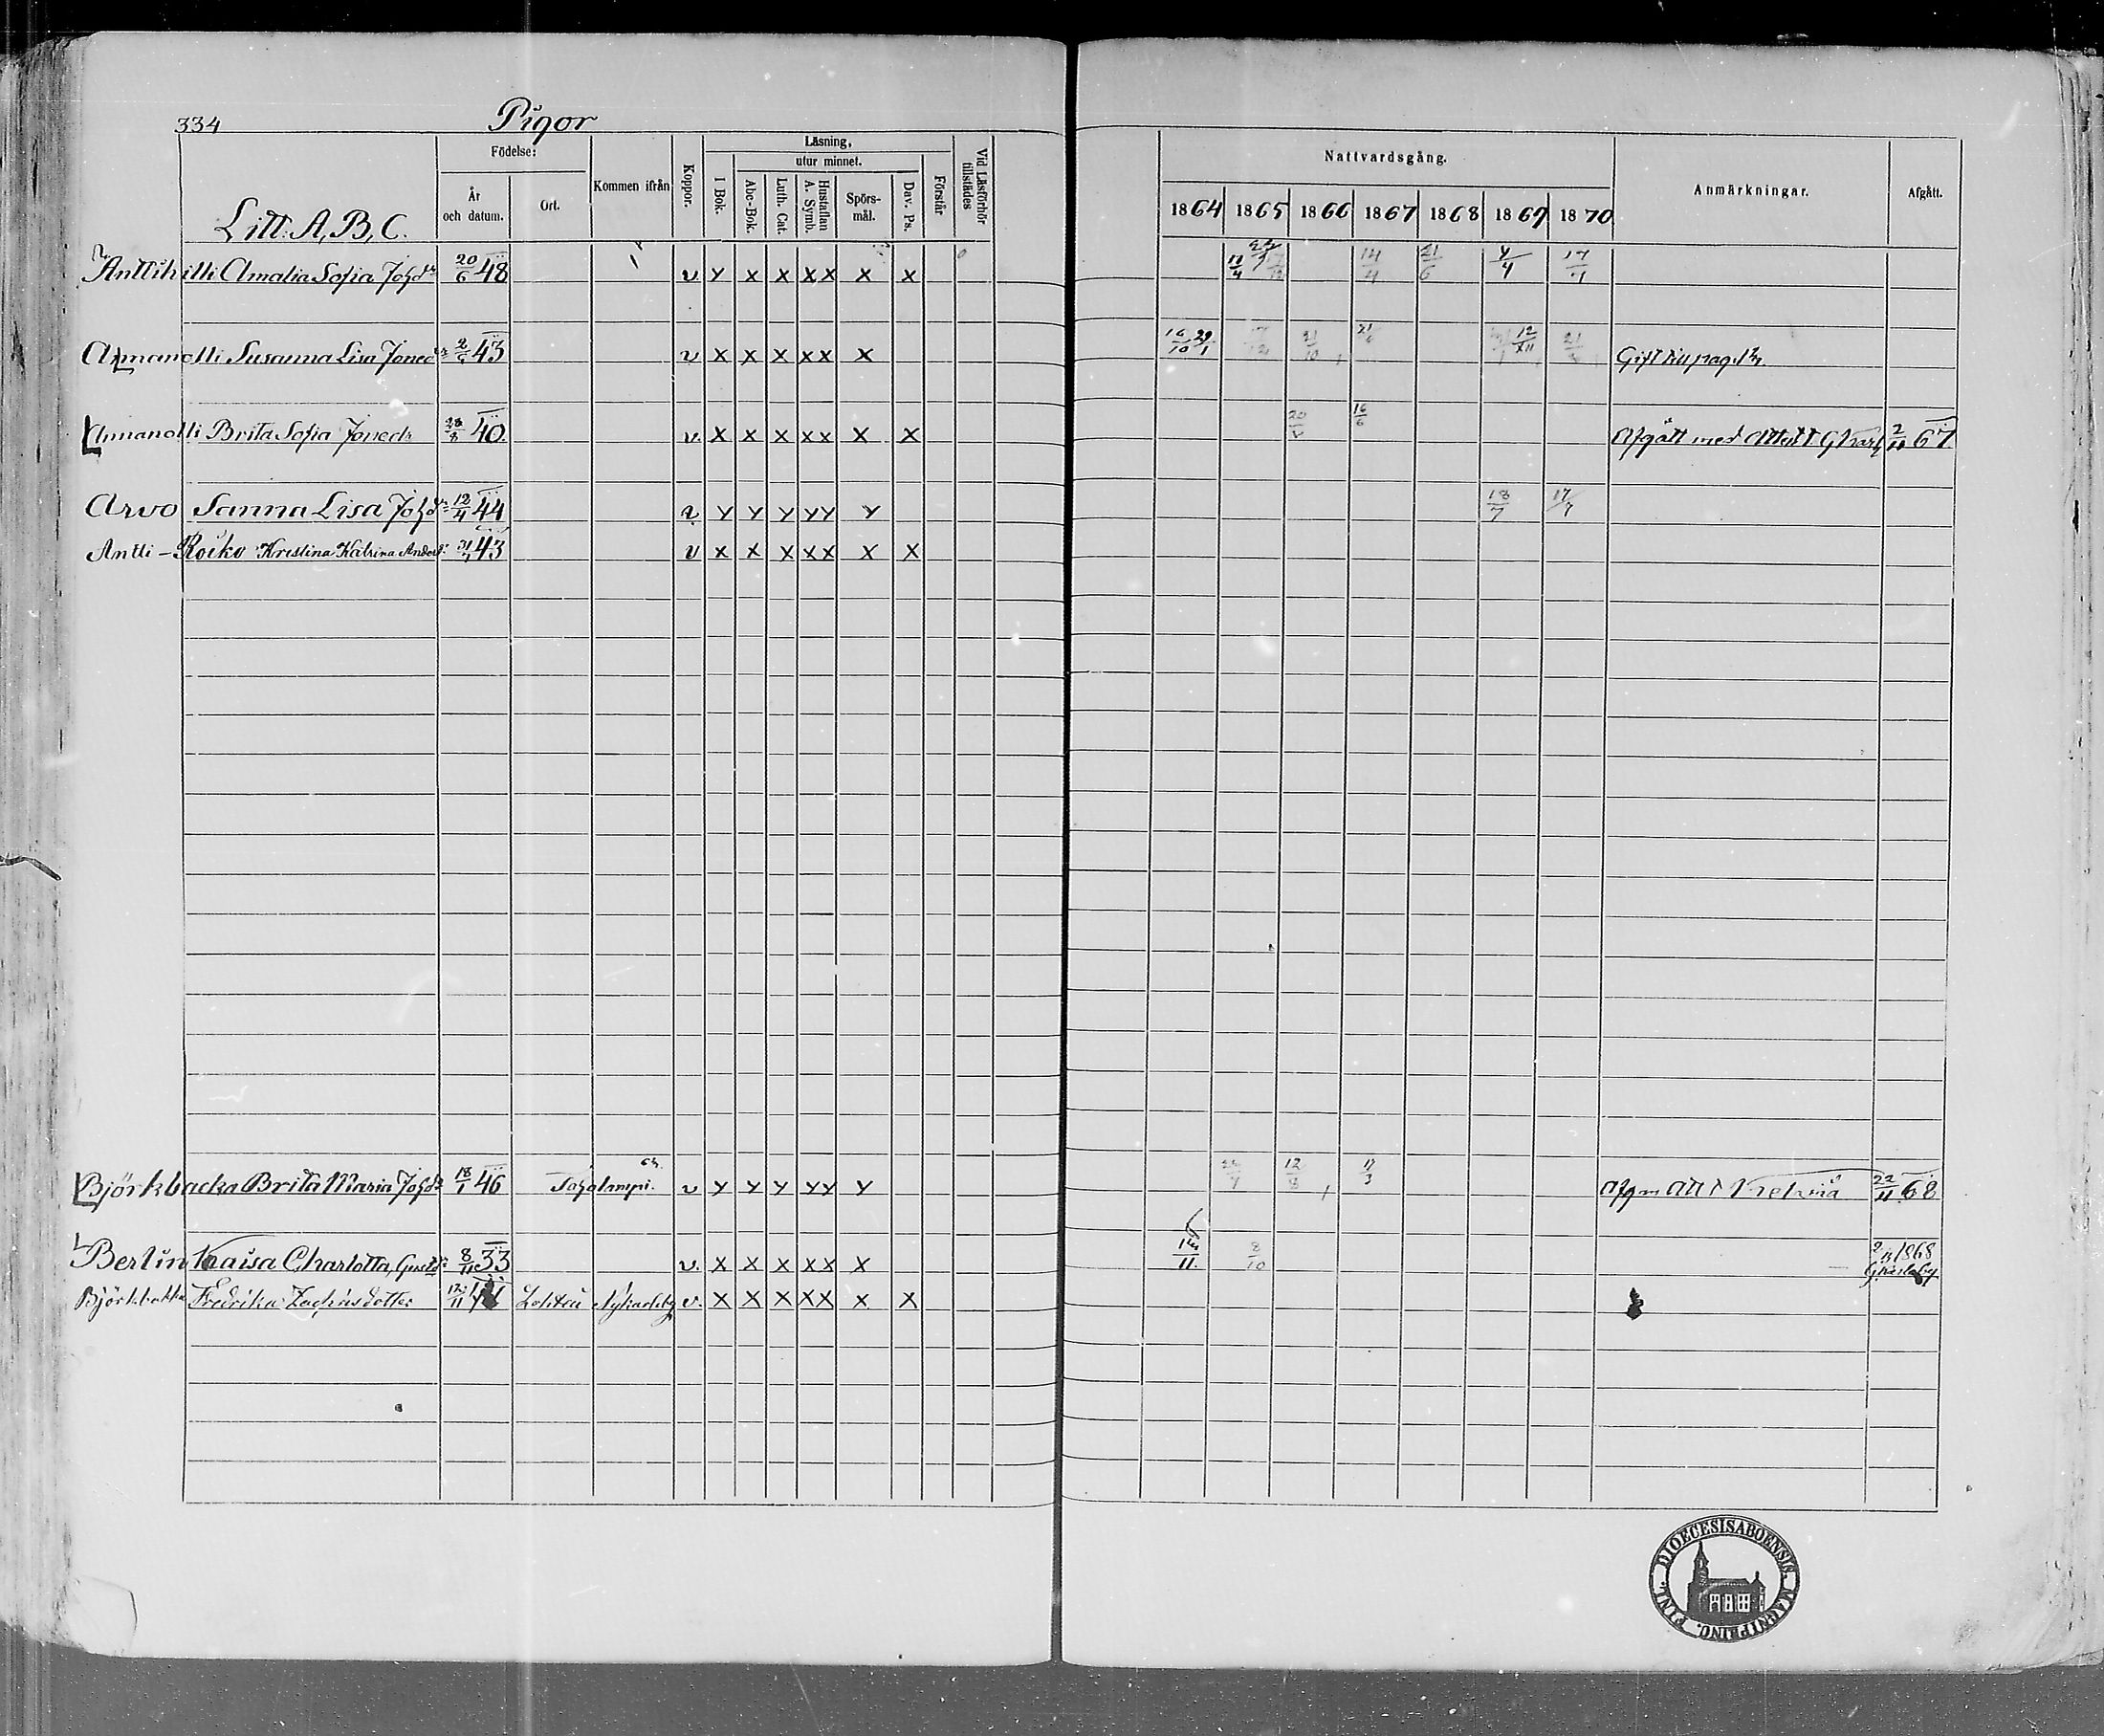 334 Pigor
Litt. A, B, C.
Födelse:
År och datum.
Ort.
Kommen ifrån
Koppor.
Läsning,
I Bok.
utur minnet.
Abc-Bok.
Luth. Cat.
Hustaflan A. Symb.
Spörs-mål.
Dav. Ps.
Förstår
Vid Läsförhör tillstädes
Nattvardsgång.
1864 1865 1866 1867 1868 1869 1870
Anmärkningar.
Afgått.
Anttihilli Amalia Sofia Johdr 20/6 48 v y x x xx x x 11/4 14/4 21/6 4/4 17/4
Ahmanolli Susanna Lisa Jonedr 43 v x x x xx x 16/10 29/1 21/6 12/XII Gift till pag.
Ahmanolli Brita Sofia Jonedr 28/8 40 v x x x xx x x 16/6 Afgått med Attest Gkarlb 2/11 67
Arvo Sanna Lisa Johdr 12/4 44 v y y y yy y 18/7 17/7
Antti-Roiko Kristina Katrina Andersdr 43 v x x x xx x x
Björkbacka Brita Maria Johdr 18/1 46 Toholampi v y y y yy y 12/8 11/3 Afg m Att t Kelviå 22/11 68
Berlin Kaisa Charlotta, Gustdr 8/11 33 v x x x xx x 11 8/10 1868 Gkarleby
Björkbacka Fredrika Zachrisdotter 12/11 Lohteå Nykarleby v. x x x xx x x
FINL. DIOECESIS ABOENSIS. MAGNI PRINC.